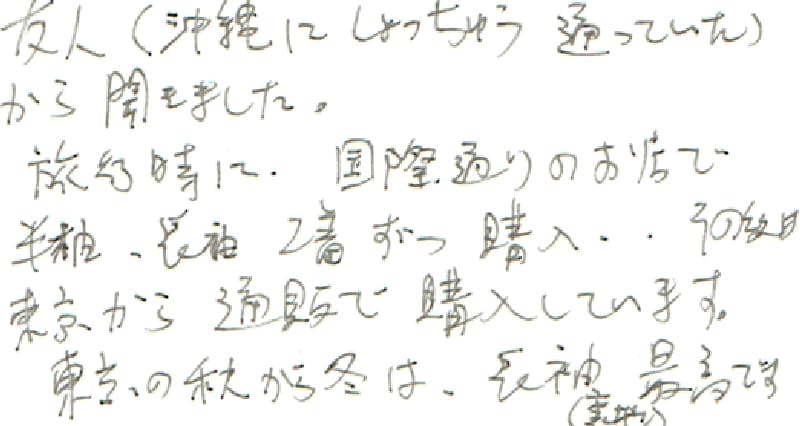 友人(沖縄にしょっちゅう通っていた)
から聞きました。
旅行時に、国際通りのお店で
半袖、長袖 2着ずつ購入・・その後は
東京から通販で購入しています。
東京の秋から冬は、長袖 最高です